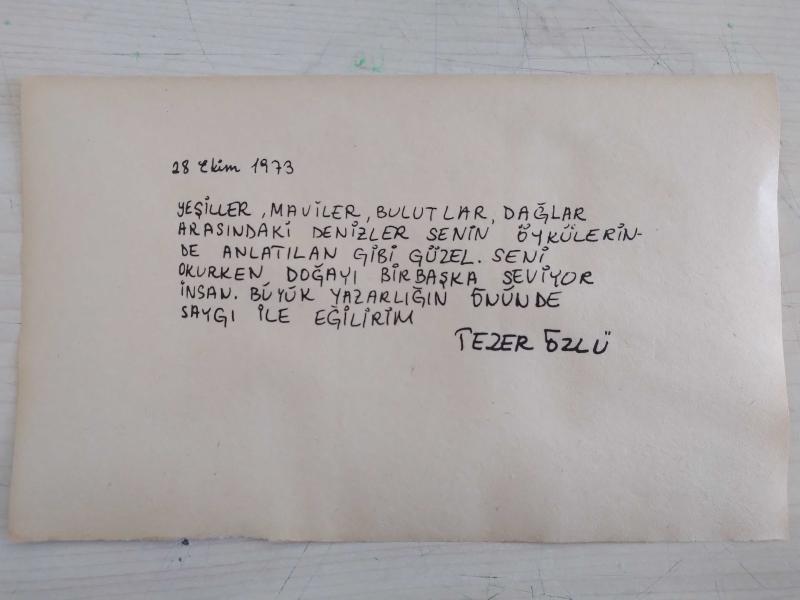 28 Ekim 1973
YEŞİLLER, MAVİLER, BULUTLAR, DAĞLAR
ARASINDAKİ DENİZLER SENİN ÖYKÜLERİN-
DE ANLATILAN GİBİ GÜZEL. SENİ
OKURKEN DOĞAYI BİRBAŞKA SEVİYOR
İNSAN. BÜYÜK YAZARLIĞIN ÖNÜNDE
SAYGI İLE EĞİLİRİM
TEZER ÖZLÜ